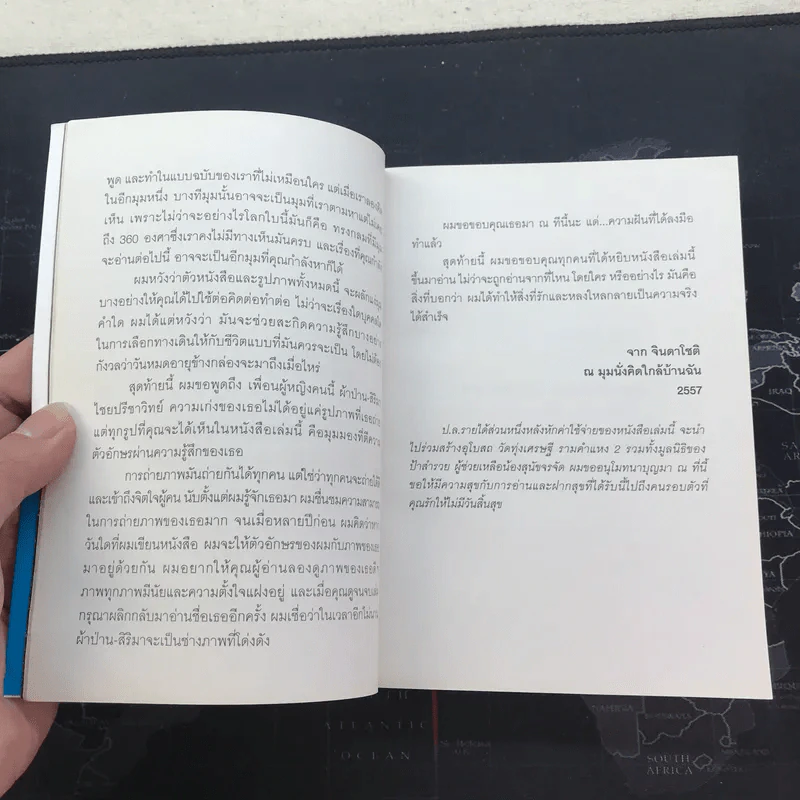 พูด และทำในแบบฉบับของเราที่ไม่เหมือนใคร แต่เมื่อเราลอง
ในอีกมุมหนึ่ง บางทีมุมนั้นอาจจะเป็นมุมที่เราตามหาแต่ไม่เคย
เห็น เพราะไม่ว่าจะอย่างไรโลกใบนี้มันก็คือ ทรงกลมที่มี
ถึง 360 องศาซึ่งเราคงไม่มีทางเห็นมันครบ และเรื่องที่คุณกำลัง
จะอ่านต่อไปนี้ อาจจะเป็นอีกมุมที่คุณกำลังหาก็ได้
ผมหวังว่าตัวหนังสือและรูปภาพทั้งหมดนี้ จะผลัก
บางอย่างให้คุณได้ไปใช้ต่อคิดต่อทำต่อ ไม่ว่าจะเรื่องใดบุคคลใด
คำใด ผมได้แต่หวังว่า มันจะช่วยสะกิดความรู้สึกบางอย่าง
ในการเลือกทางเดินให้กับชีวิตแบบที่มันควรจะเป็น โดยไม่ต้อง
กังวลว่าวันหมดอายุข้างกล่องจะมาถึงเมื่อไหร่
สุดท้ายนี้ ผมขอพูดถึง เพื่อนผู้หญิงคนนี้ ผ้าป่าน-สิริมา
ไชยปรีชาวิทย์ ความเก่งของเธอไม่ได้อยู่แค่รูปภาพที่เธอถ่าย
แต่ทุกรูปที่คุณจะได้เห็นในหนังสือเล่มนี้ คือมุมมองที่ตีความ
ตัวอักษรผ่านความรู้สึกของเธอ
การถ่ายภาพมันถ่ายกันได้ทุกคน แต่ใช่ว่าทุกคนจะถ่ายได้
และเข้าถึงจิตใจผู้คน นับตั้งแต่ผมรู้จักเธอมา ผมชื่นชมความสามารถ
ในการถ่ายภาพของเธอมาก จนเมื่อหลายปีก่อน ผมคิดว่าหาก
วันใดที่ผมเขียนหนังสือ ผมจะให้ตัวอักษรของผมกับภาพของเธอ
มาอยู่ด้วยกัน ผมอยากให้คุณผู้อ่านลองดูภาพของเธอ
ภาพทุกภาพมีนัยและความตั้งใจแฝงอยู่ และเมื่อคุณดูจนจบเล่ม
กรุณาพลิกกลับมาอ่านชื่อเธออีกครั้ง ผมเชื่อว่าในเวลาอีกไม่นาน
ผ้าป่าน-สิริมาจะเป็นช่างภาพที่โด่งดัง
ผมขอขอบคุณเธอมา ณ ทีนี้นะ แด่...ความฝันที่ได้ลงมือ
ทำแล้ว
สุดท้ายนี้ ผมขอขอบคุณทุกคนที่ได้หยิบหนังสือเล่มนี้
ขึ้นมาอ่าน ไม่ว่าจะถูกอ่านจากที่ไหน โดยใคร หรืออย่างไร มันคือ
สิ่งที่บอกว่า ผมได้ทำให้สิ่งที่รักและหลงใหลกลายเป็นความจริง
ได้สำเร็จ
จาก จินดาโชติ
ณ มุมนั่งคิดใกล้บ้านฉัน
2557
ป.ล.รายได้ส่วนหนึ่งหลังหักค่าใช้จ่ายของหนังสือเล่มนี้ จะนำ
ไปร่วมสร้างอุโบสถ วัดทุ่งเศรษฐี รามคำแหง 2 รวมทั้งมูลนิธิของ
ป้าสำรวย ผู้ช่วยเหลือน้องสุนัขจรจัด ผมขออนุโมทนาบุญมา ณ ที่นี้
ขอให้มีความสุขกับการอ่านและฝากสุขที่ได้รับนี้ไปถึงคนรอบตัวที่
คุณรักให้ไม่มีวันสิ้นสุข
ATLANTIC
OCEAN
NAMIBIA
SOUTH
AFRICA